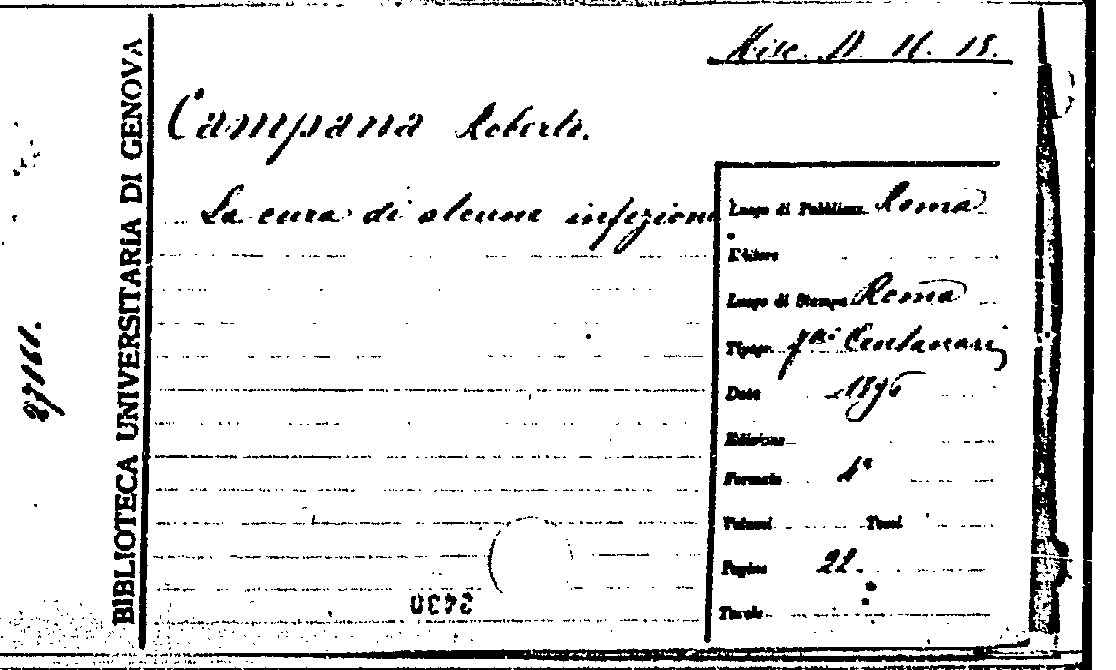 Misc. D. 11. 15.
BIBLIOTECA UNIVERSITARIA DI GENOVA
27161.
Campana Roberto.
La cura di alcune infezioni
Luogo di Pubblicaz. Roma
Editore
Luogo di Stampa Roma
Tipogr. Flli Centenari
Data 1896
Edizione
Formato 4°
Volumi Tomi
Pagine 22.
Tavole